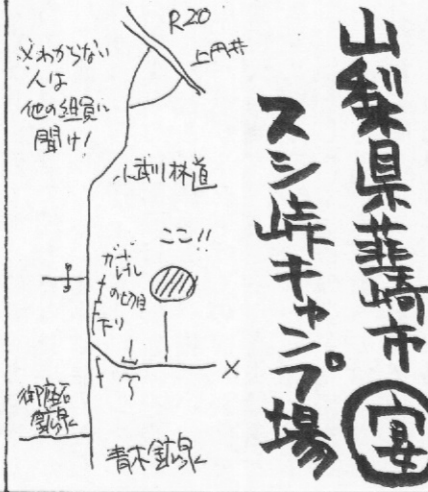 山梨県韮崎市
宴
スシ峠キャンプ場
R20
上円井
※わからない
人は
他の組員に
聞け!
小武川林道
ここ!!
ガード
レール
の切目
下り
X
御座石
鉱泉
青木鉱泉